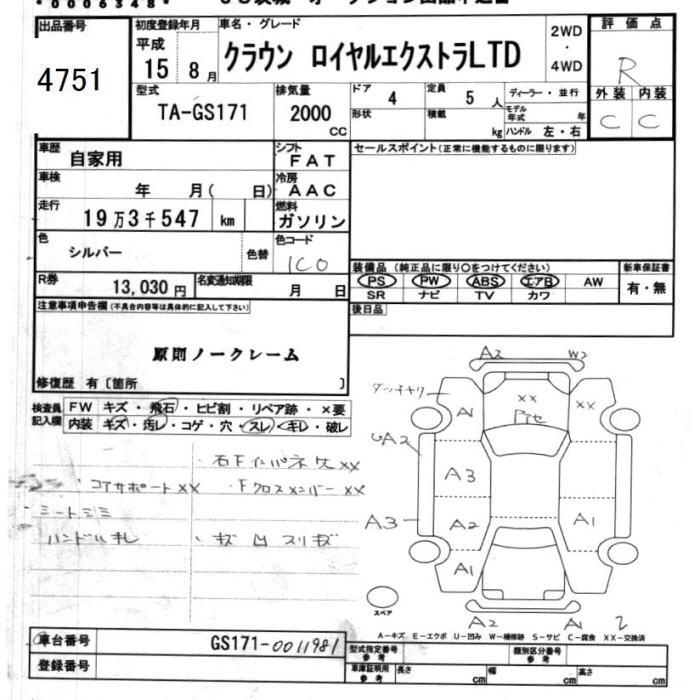 *0006348*
出品番号
4751
初度登録年月
平成
15 8 月
車名・グレード
クラウン ロイヤルエクストラLTD
2WD
・
4WD
評価点
R
外装 内装
C C
型式
TA-GS171
排気量
2000
CC
ドア
4
定員
5 人
形状
積載
kg
ディーラー・並行
モデル
年式
年
ハンドル 左・右
車歴
自家用
シフト
FAT
車検
年 月( 日)
冷房
AAC
走行
19万3千547 km
燃料
ガソリン
色
シルバー
色替
色コード
1C0
R券
13,030円
名変通知期限
月 日
セールスポイント(正常に機能するものに限ります)
装備品 (純正品に限り○をつけてください)
PS PW ABS エアB AW
SR ナビ TV カワ
新車保証書
有・無
後日品
注意事項申告欄(不具合内容等は具体的に記入して下さい)
原則ノークレーム
修復歴 有〔箇所 〕
検査員
記入欄
FW キズ・飛石・ヒビ割・リペア跡・×要
内装 キズ・汚レ・コゲ・穴・スレ・キレ・破レ
右Fインパネ欠XX
コアサポートXX ・FクロスメンバーXX
ハンドル
・キズ 凹 スリキズ
A2
W2
A1
XX
XX
A2
A3
A3
A2
A1
A1
A2
A1
2
スペア
A-キズ E-エクボ U-凹み W-補修跡 S-サビ C-腐食 XX-交換済
車台番号
GS171-0011981
登録番号
型式指定番号
参考
類別区分番号
参考
車庫証明用
参考
長さ cm
幅 cm
高さ cm